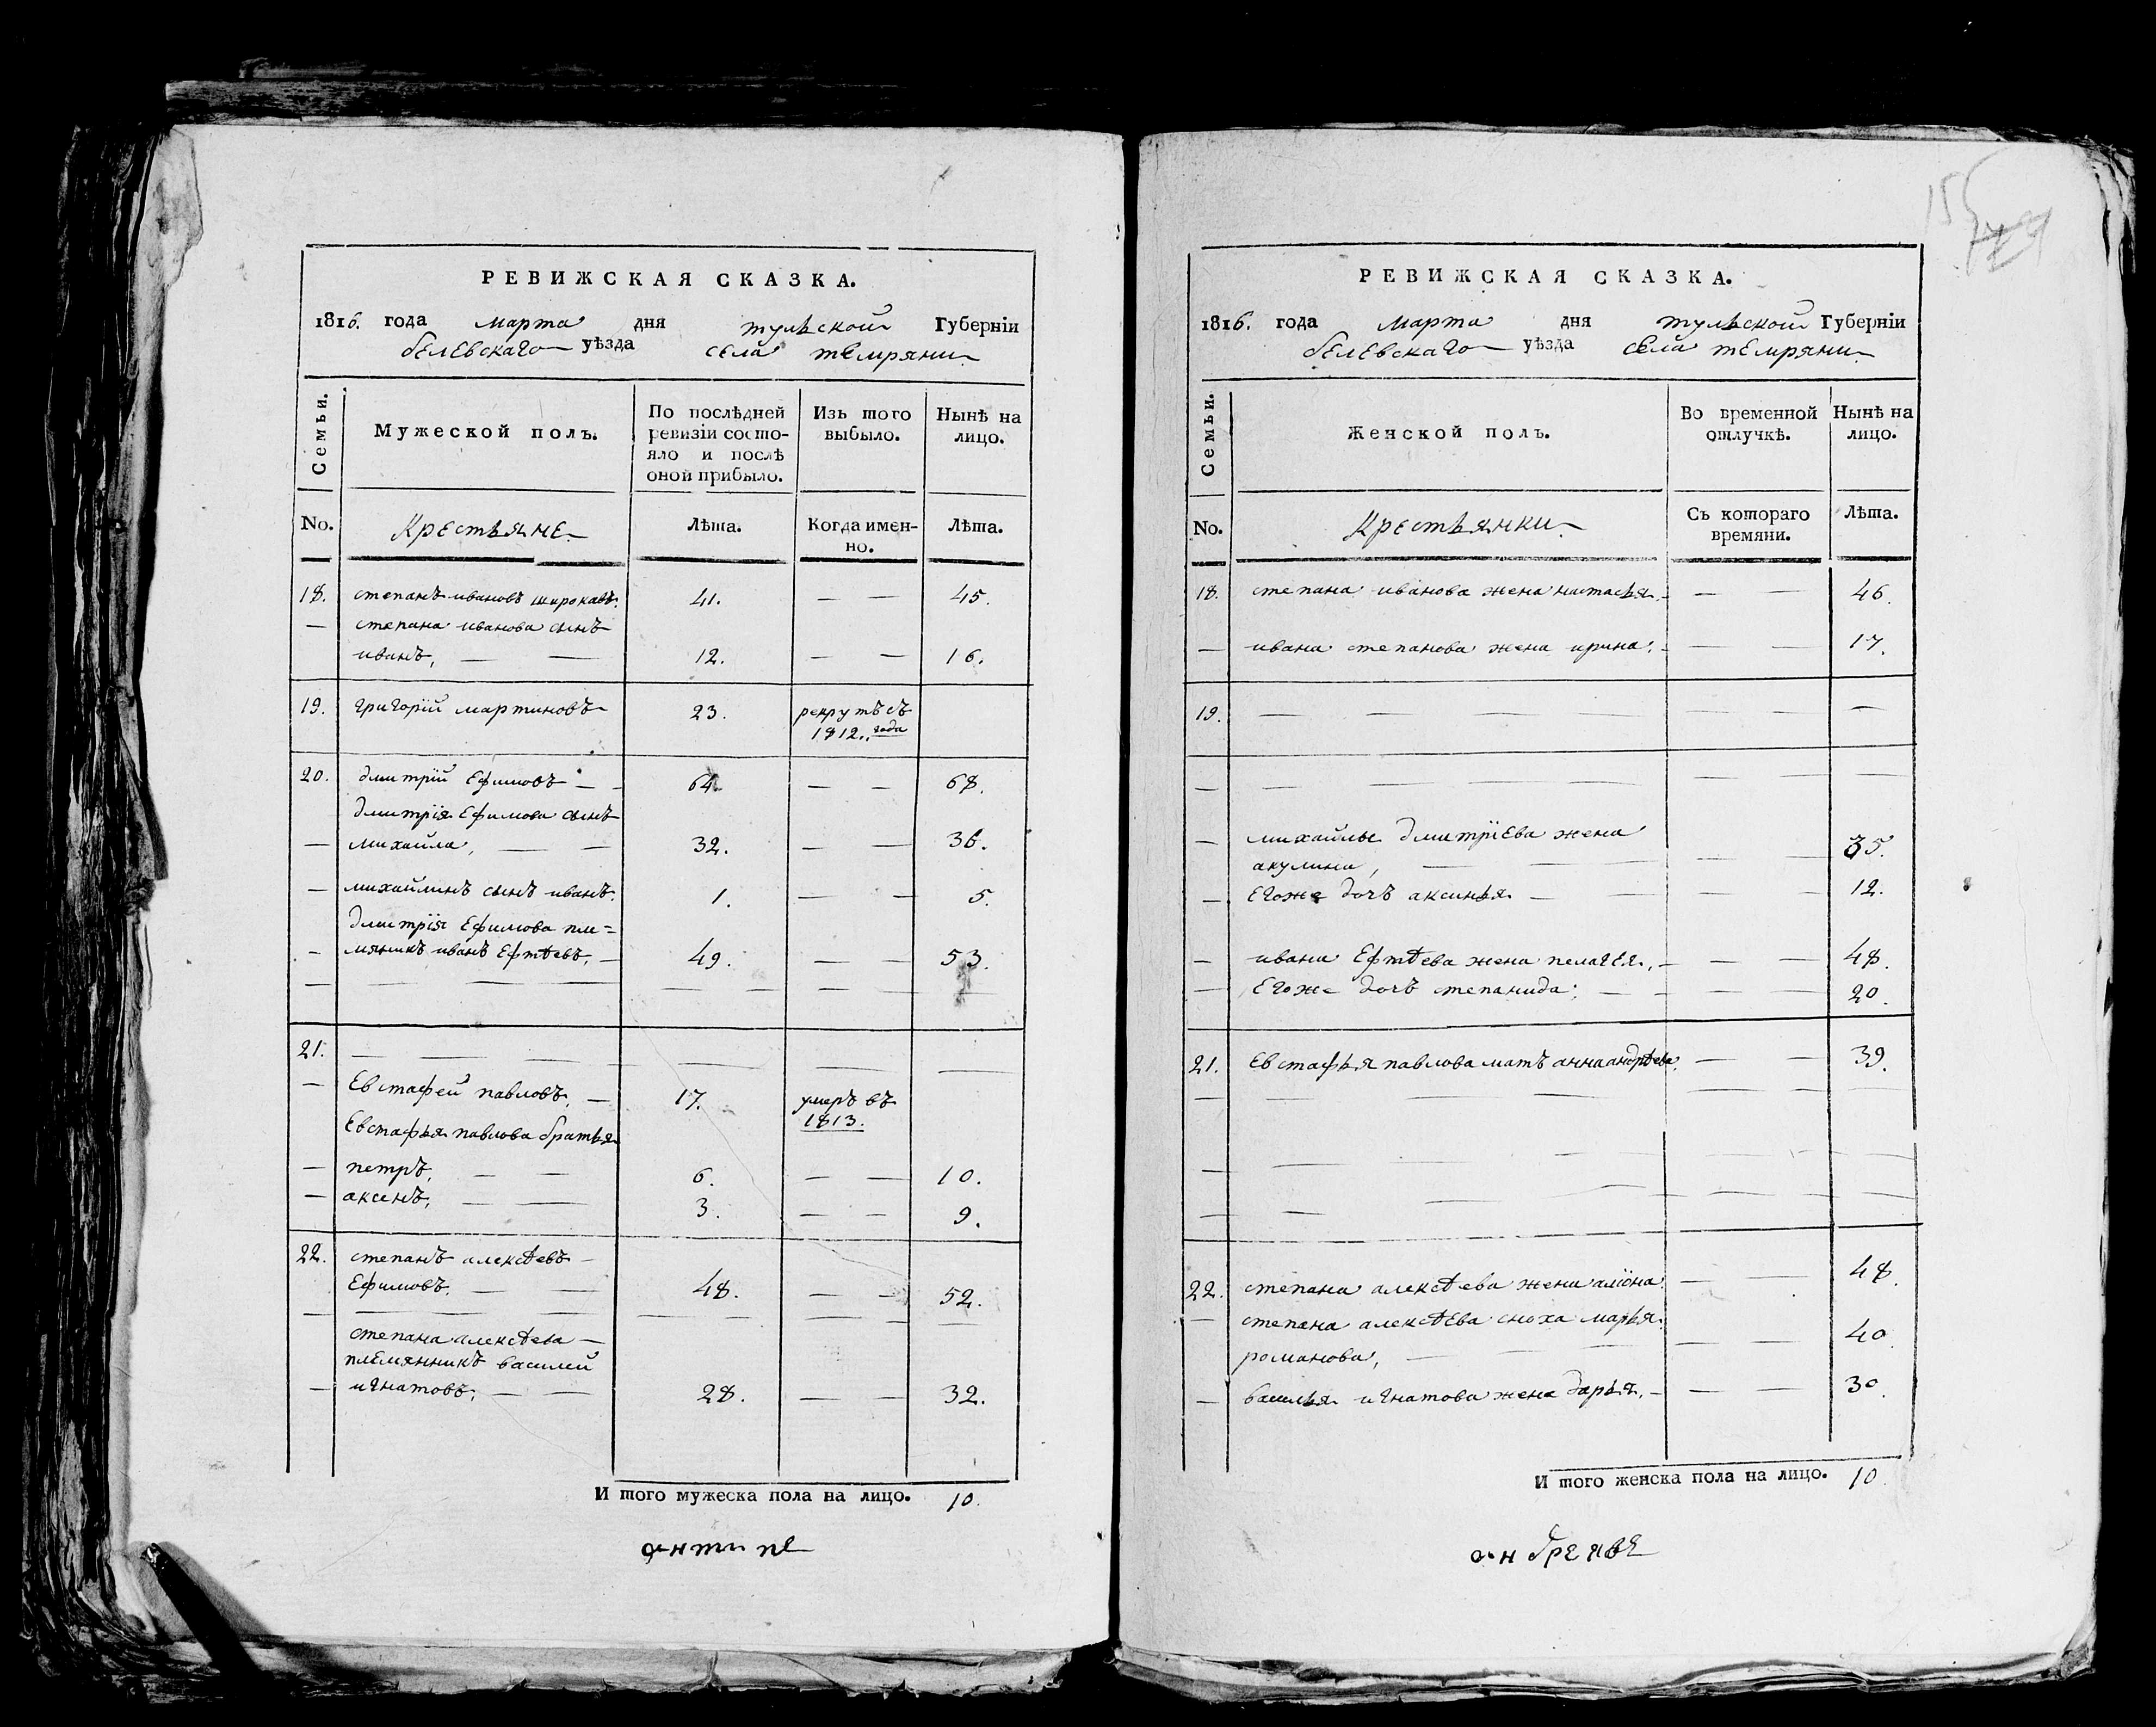 РЕВИЖСКАЯ СКАЗКА.
1816. года марта дня тульской Губерніи
белевскаго уѣзда села темряни
Семьи.
Мужеской полъ.
По послѣдней ревизіи состо-
яло и послѣ
оной прибыло.
Изъ того
выбыло.
Нынѣ на
лицо.
No. Крестьяне Лѣта. Когда имен-
но. Лѣта.
18. степанъ ивановъ широкавъ. 41. — — 45.
— степана иванова сынъ
иванъ, — — 12. — — 16.
19. григорій мартиновъ 23. рекрутъ съ
1812., года
20. дмитрій Ефимовъ — — 64. — — 68.
дмитрія Ефимова сынъ
— михайла, — — 32. — — 36.
— михайлинъ сынъ иванъ. 1. — — 5.
дмитрія Ефимова пле=
— мянникъ иванъ Ефтѣевъ, — 49. — — 53.
21. — — —
— Евстафей павловъ, — 17. умеръ въ
1813.
Евстафья павлова братья
— петръ, — — 6. — — 10.
— аксенъ, — — 3. — — 9.
22. степанъ алексѣевъ —
Ефимовъ. — — 48. — — 52.
степана алексѣева —
племянникъ василей
— игнатовъ; — — 28. — — 32.
И того мужеска пола на лицо. 10.
антипе
РЕВИЖСКАЯ СКАЗКА.
1816. года марта дня тульской Губерніи
белевскаго уѣзда села темряни
Семьи.
Женской полъ.
Во временной
отлучкѣ.
Нынѣ на
лицо.
No. Крестьянки Съ котораго
времяни. Лѣта.
18. степана иванова жена настасья. — — 46.
— ивана степанова жена ирина. — — 17.
19. — — —
— михайлы дмитріева жена
акулина, — — 35.
— Егоже дочъ аксинья — — — 12.
— ивана Ефтѣева жена пелагея, — — 48.
— Егоже дочъ степанида; — — 20.
21. Евстафья павлова матъ анна андрѣева, — — 39.
22. степана алексѣева жена аліона. — — 48.
— степана алексѣева сноха марья
романова, — — 40.
— василья игнатова жена дарья, — — 30.
И того женска пола на лицо. 10.
андреяве